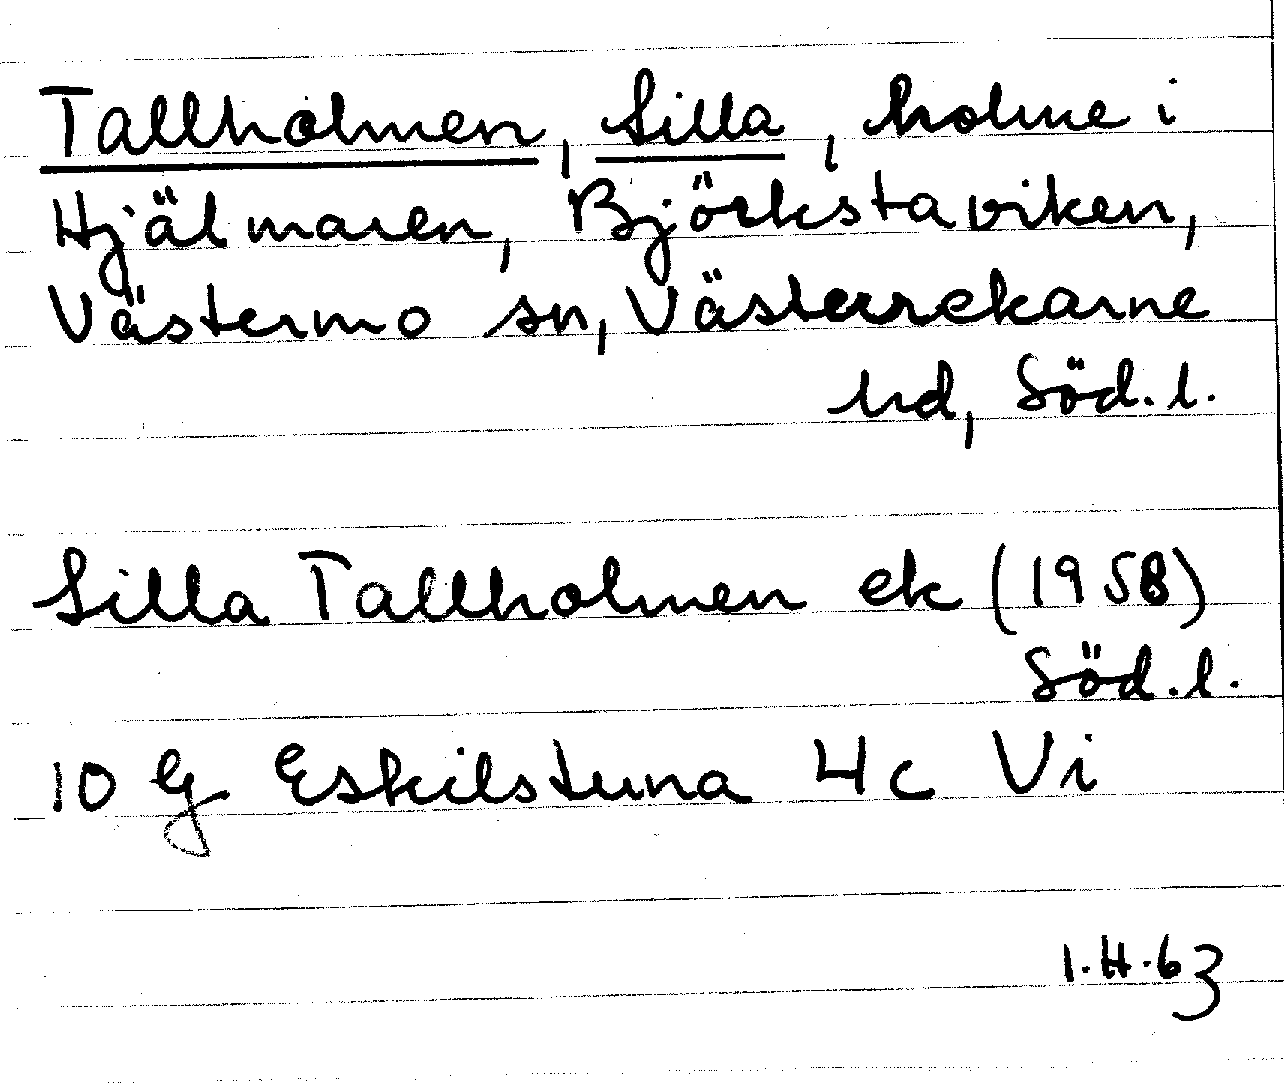 Tallholmen, Lilla, holme i
Hjälmaren, Björkstaviken,
Västermo sn, Västerrekarne
hd, Söd.l.
Lilla Tallholmen ek (1958)
Söd.l.
10 G Eskilstuna 4c Vi
1.4.63